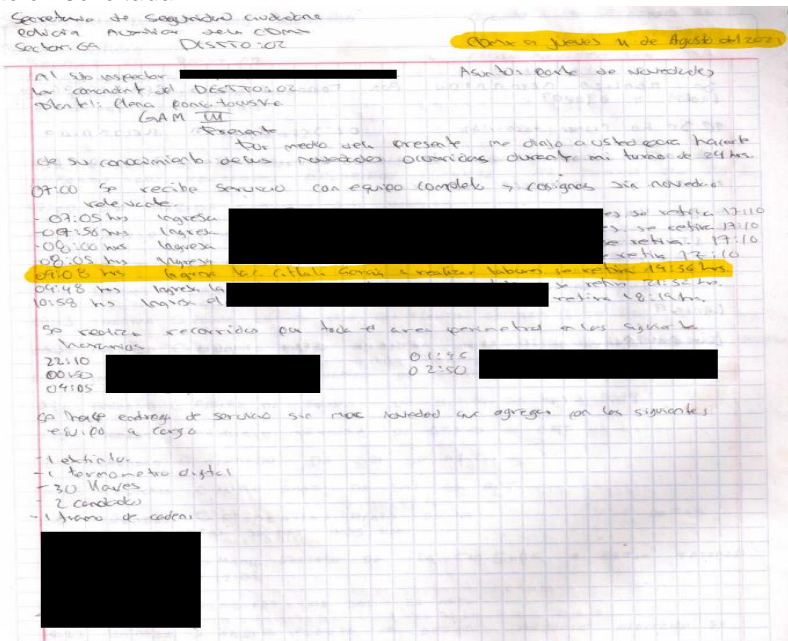 Secretaria de Seguridad ciudadana
policia Auxiliar de la CDMX
Sector: 69 DESTTO: 02
CDMX a Jueves 4 de Agosto del 202
Al sub inspector
Asunto: parte de novedades
comandante del DESTTO: 02
GAM III
Presente
Por medio de la presente me dirijo a usted para hacerle
de su conocimiento de las novedades ocurridas durante mi turno de 24 hrs.
07:00 Se recibe servicio con equipo completo y cosignas sin novedad
relevante.
- 07:05 hrs Ingresa se retira 17:10
- 07:56 hrs Ingresa se retira 17:10
- 08:00 hrs Ingresa se retira: 17:10
- 08:05 hrs Ingresa retira 17:10
09:08 hrs Ingresa la c. Citlala García a realizar labores se retira 19:54 hrs.
09:48 hrs Ingresa la se retira 21:52 hrs.
10:58 hrs Ingresa el retira 18:19 hrs.
Se realiza recorridos por toda el area perimetral en los siguiente
horarios
22:10 01:45
00:50 02:50
04:05
Se hace entrega de servicio sin mas novedad que agregar con los siguientes
equipo a cargo
- 1 extintor
- 1 termometro digital
- 30 llaves
- 2 candados
- 1 tramo de cadena